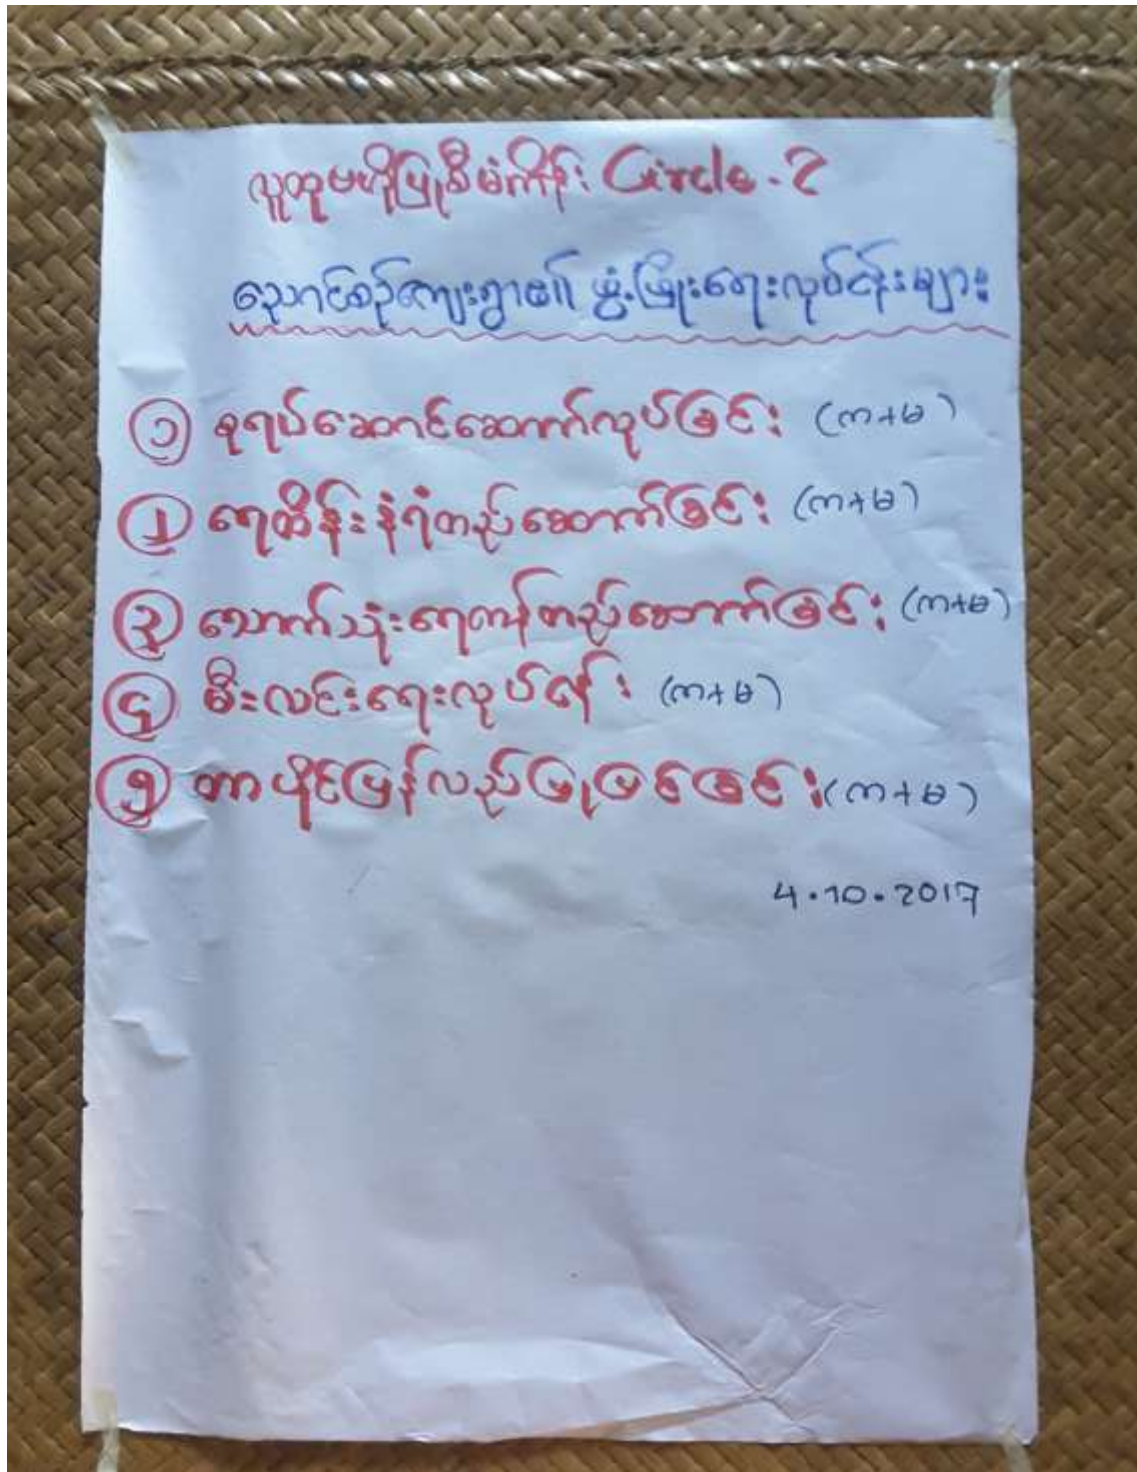 လူထုဗဟိုပြုစီမံကိန်း Circle-2
ညောင်စဉ်ကျေးရွာ၏ ဖွံ့ဖြိုးရေးလုပ်ငန်းများ
၁ စုရပ်ဆောင်ဆောက်လုပ်ခြင်း (က+မ)
၂ ရေထိန်းနံရံတည်ဆောက်ခြင်း (က+မ)
၃ သောက်သုံးရေကန်တည်ဆောက်ခြင်း (က+မ)
၄ မီးလင်းရေးလုပ်ငန်း (က+မ)
၅ တာပိုင်ပြန်လည်ပြုပြင်ခြင်း (က+မ)
4.10.2017